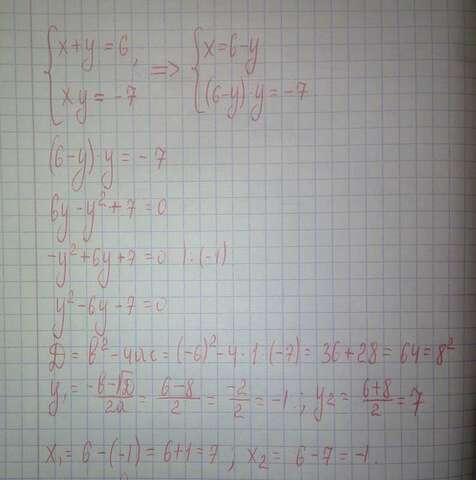 {x+y=6, => {x=6-y
{xy=-7 {(6-y)·y=-7
(6-y)·y=-7
6y-y²+7=0
-y²+6y+7=0 |·(-1)
y²-6y-7=0
Д=b²-4ac=(-6)²-4·1·(-7)=36+28=64=8²
y₁=(-b-√D)/2a=(6-8)/2=-2/2=-1; y₂=(6+8)/2=7
x₁=6-(-1)=6+1=7; x₂=6-7=-1.